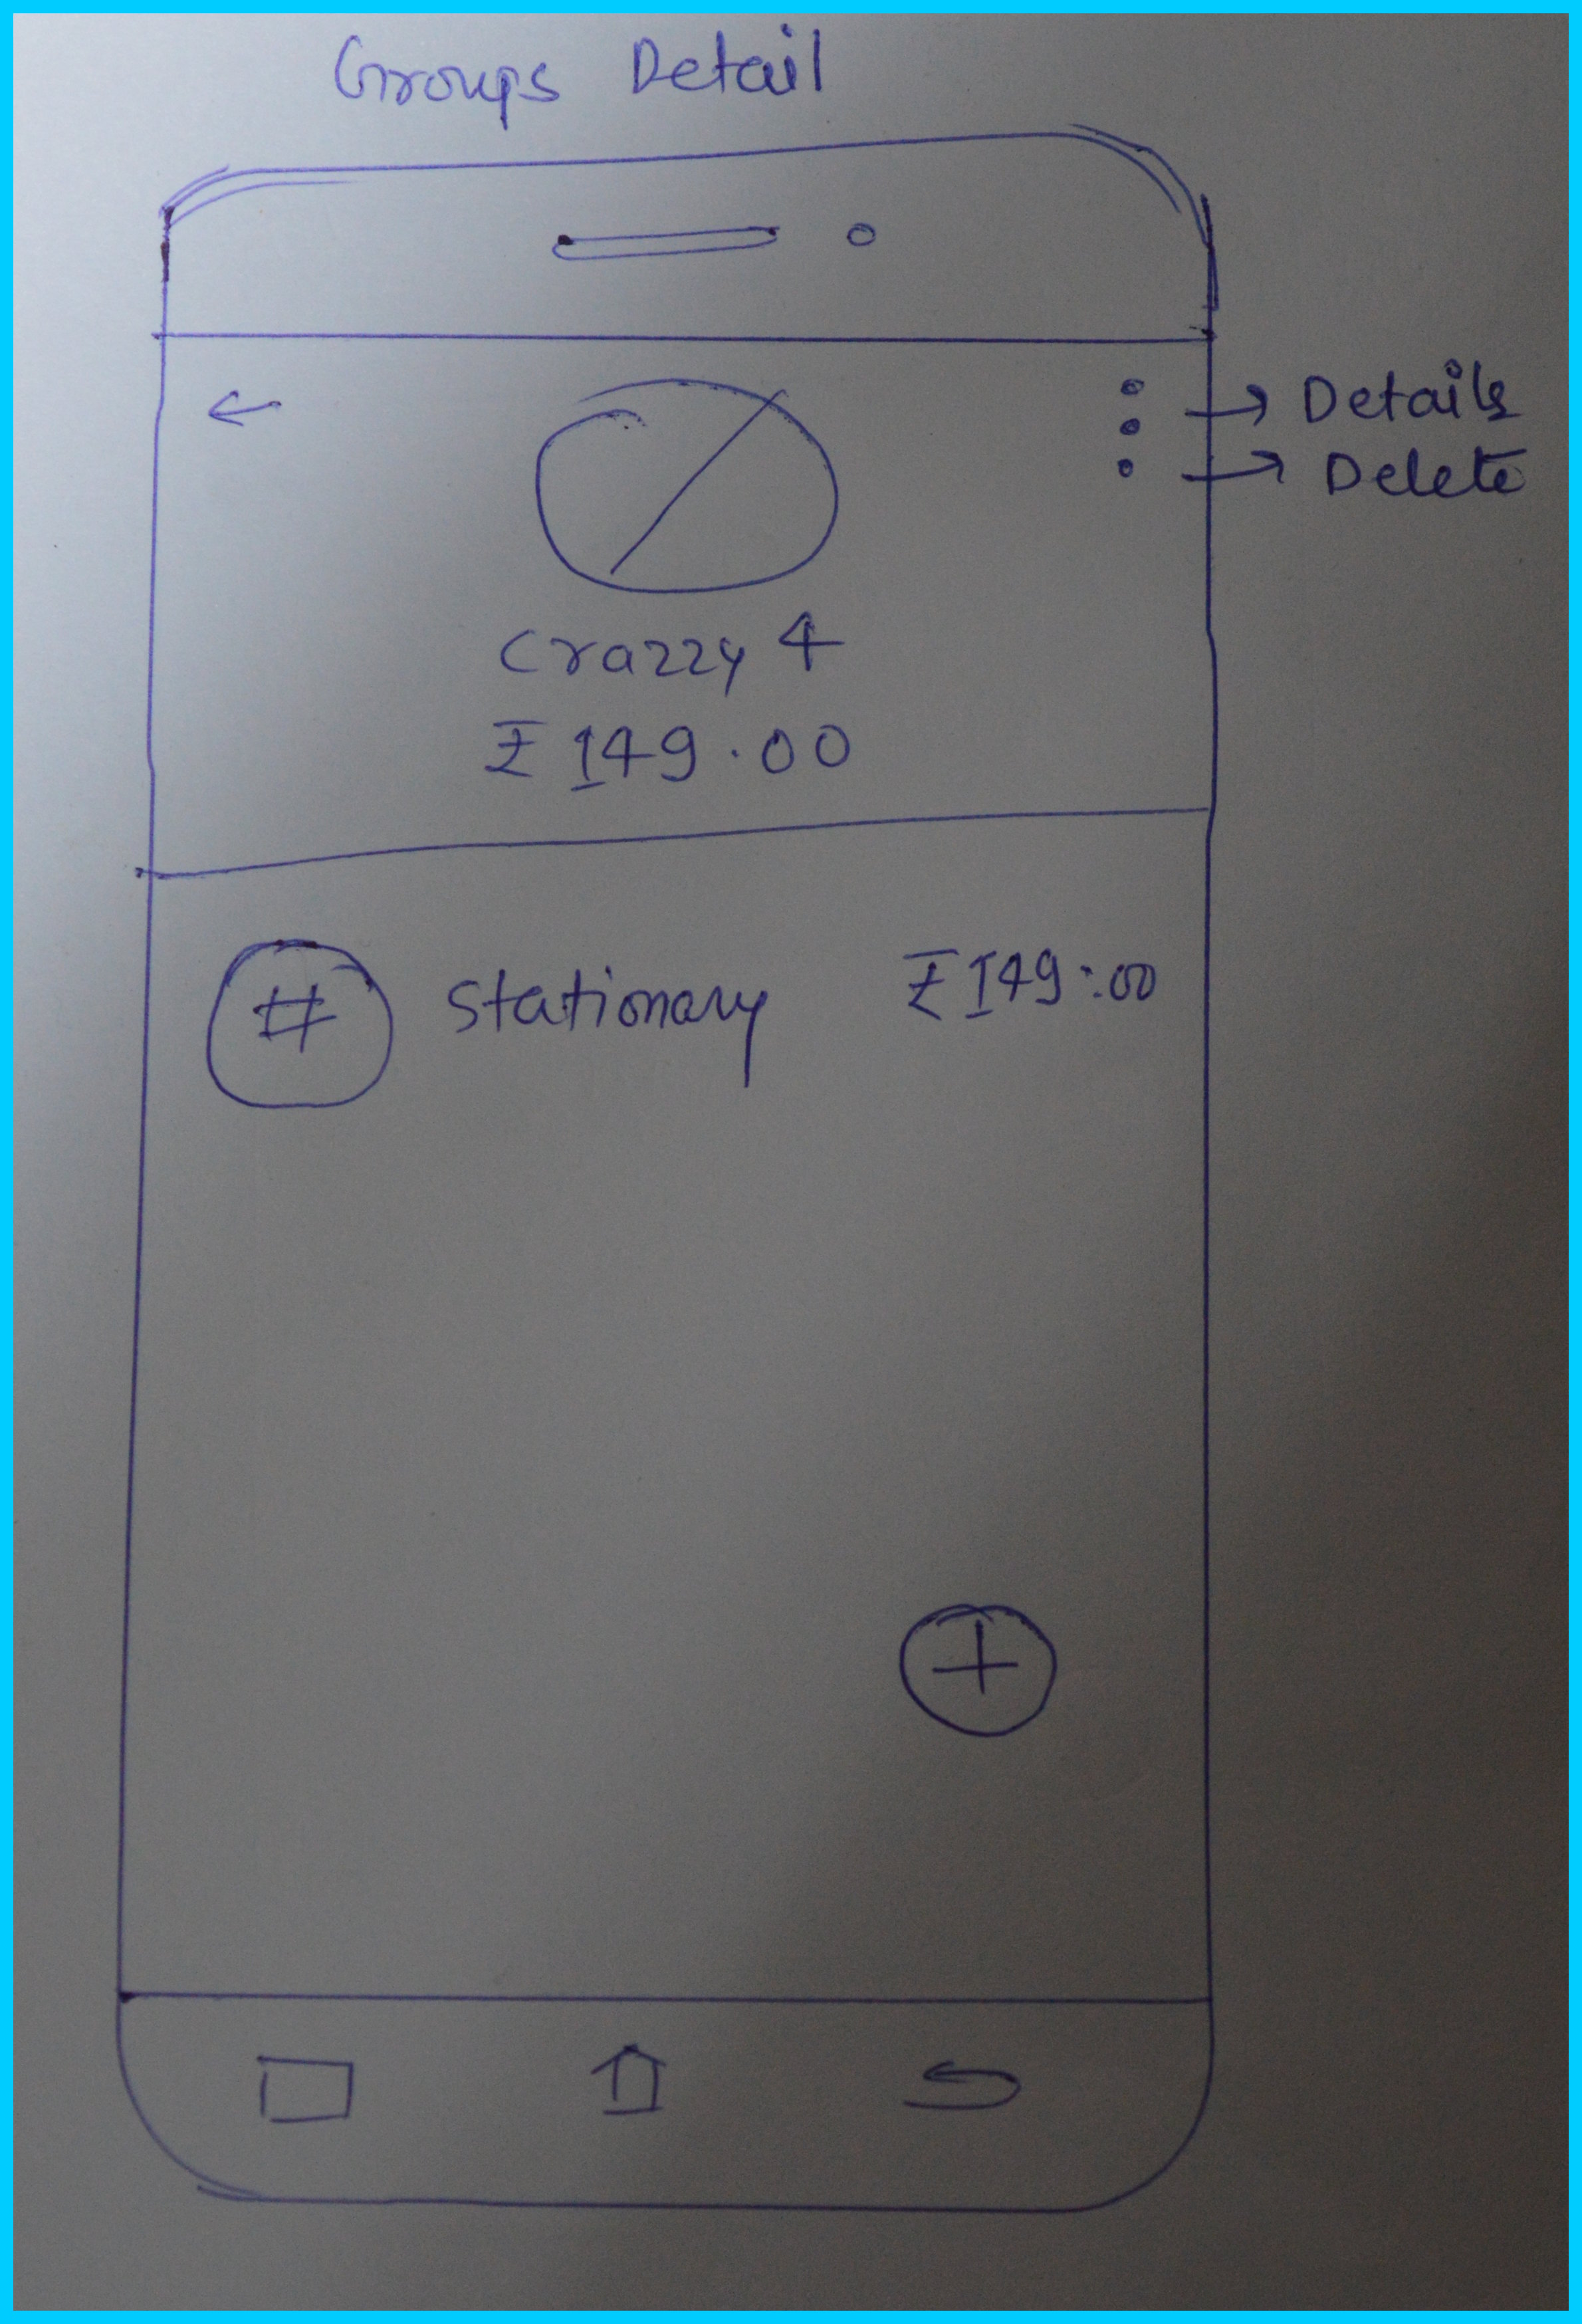 Groups Detail
Details
Delete
Crazzy 4
₹ 149.00
# Stationary ₹ 149.00